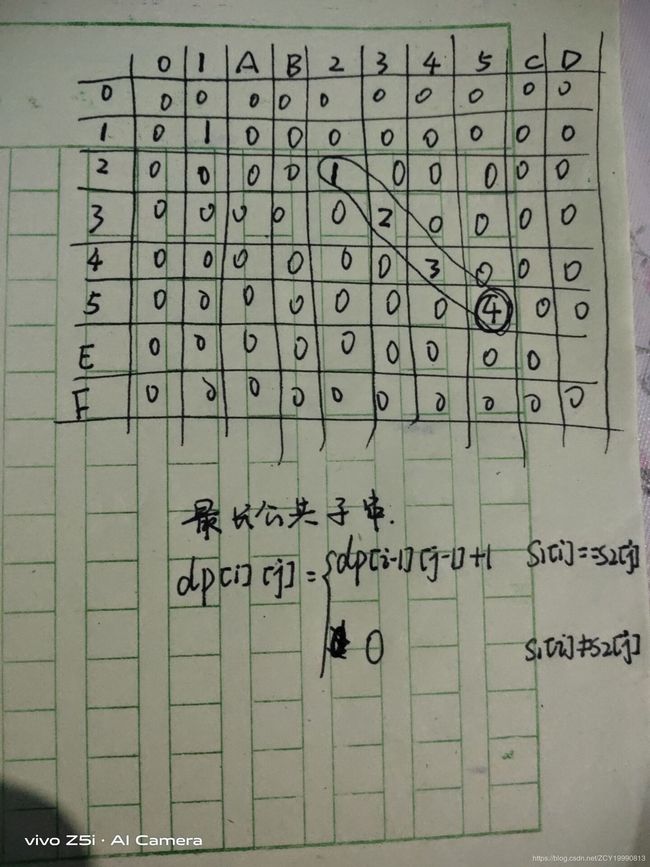 0 1 A B 2 3 4 5 C D
0 0 0 0 0 0 0 0 0 0 0
1 0 1 0 0 0 0 0 0 0 0
2 0 0 0 0 1 0 0 0 0 0
3 0 0 0 0 0 2 0 0 0 0
4 0 0 0 0 0 0 3 0 0 0
5 0 0 0 0 0 0 0 4 0 0
E 0 0 0 0 0 0 0 0 0
F 0 0 0 0 0 0 0 0 0 0
最长公共子串.
dp[i][j]={dp[i-1][j-1]+1 S1[i]==S2[j]
0 S1[i]≠S2[j]
vivo Z5i · AI Camera
https://blog.csdn.net/ZCY19990813